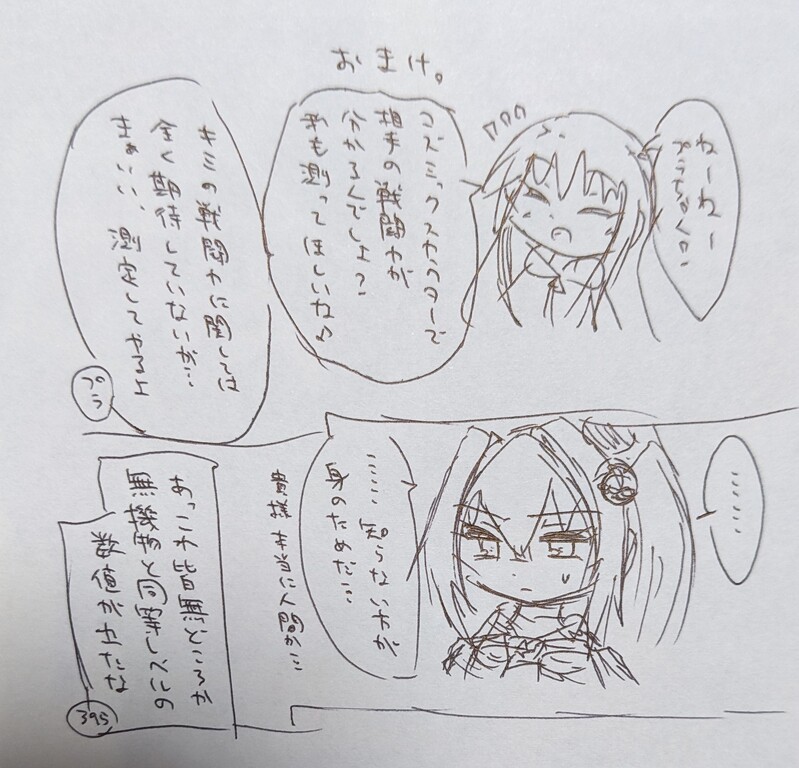 おまけ。
ねーねー
プラちゃくん?
コズミックスカウターで
相手の戦闘力が
分かるんでしょ?
私も測ってほしいな♪
キミの戦闘力に関しては
全く期待していないが…
まぁいい、測定してやるよ
プラ
……
……知らない方が
身のためだ…
貴様本当に人間か…
あっこれ皆無どころか
無機物と同等レベルの
数値が出たな
395